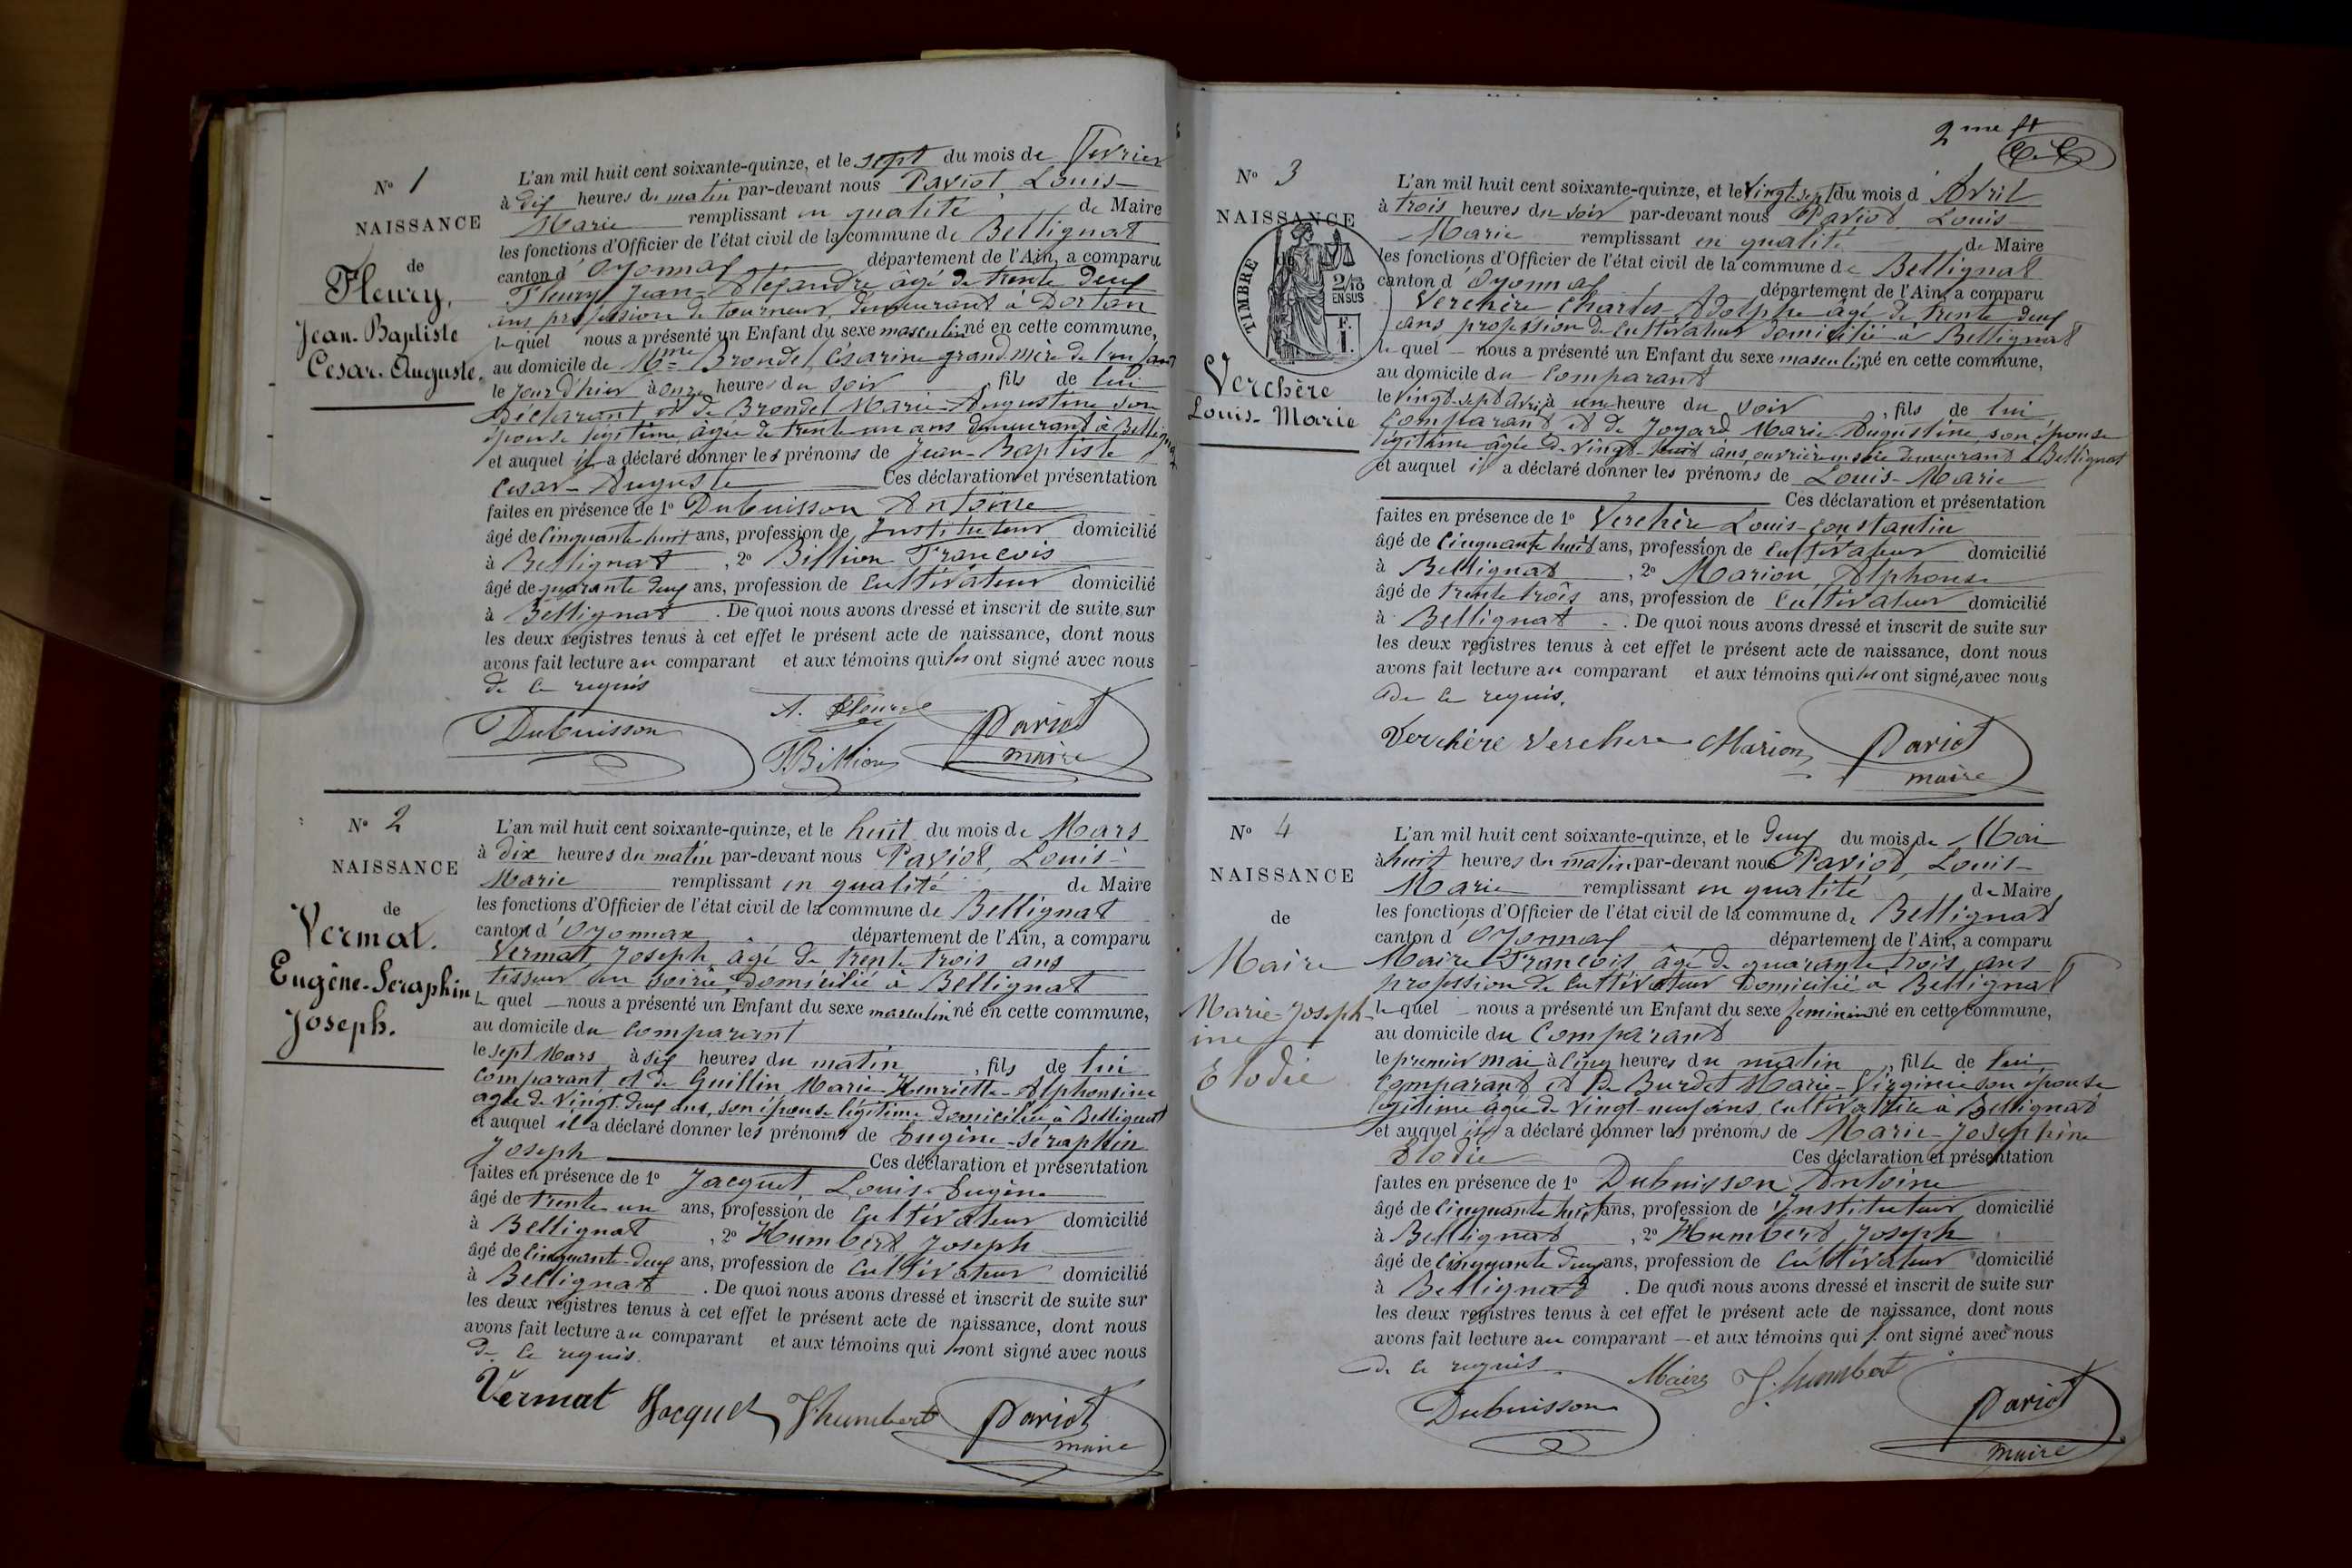 N° 1
NAISSANCE
de
Fleury,
Jean-Baptiste
Cesar-Auguste.
L'an mil huit cent soixante-quinze, et le sept du mois de Fevrier
à dix heures du matin par-devant nous Paviot, Louis-
Marie remplissant en qualité de Maire
les fonctions d'Officier de l'état civil de la commune de Bellignat
canton d'Oyonnax département de l'Ain, a comparu
Fleury Jean-Aléxandre âgé de trente deux
ans profession de tourneur, demeurant à Dortan
le quel nous a présenté un Enfant du sexe masculin né en cette commune,
au domicile de Mme Brondel, Césarine grand mère de l'enfant
le jour d'hier à onze heures du soir, fils de lui
déclarant et de Brondel Marie-Augustine son
épouse légitime, âgée de trente un ans demeurant à Bellignat
et auquel il a déclaré donner les prénoms de Jean-Baptiste
Cesar-Auguste Ces déclaration et présentation
faites en présence de 1° Dubuisson Antoine
âgé de Cinquante huit ans, profession de Instituteur domicilié
à Bellignat, 2° Billion François
âgé de quarante deux ans, profession de Cultivateur domicilié
à Bellignat. De quoi nous avons dressé et inscrit de suite sur
les deux registres tenus à cet effet le présent acte de naissance, dont nous
avons fait lecture au comparant et aux témoins qui les ont signé avec nous
de ce requis
Dubuisson A. Fleury F. Billion Paviot
maire
N° 2
NAISSANCE
de
Vermat.
Eugène-Seraphin
Joseph.
L'an mil huit cent soixante-quinze, et le huit du mois de Mars
à dix heures du matin par-devant nous Paviot, Louis-
Marie remplissant en qualité de Maire
les fonctions d'Officier de l'état civil de la commune de Bellignat
canton d'Oyonnax département de l'Ain, a comparu
Vermat, Joseph, âgé de trente trois ans
tisseur en soirie, domicilié à Bellignat
le quel nous a présenté un Enfant du sexe masculin né en cette commune,
au domicile du Comparant
le sept Mars à six heures du matin, fils de lui
comparant, et de Guillin, Marie-Henriette-Alphonsine
agée de vingt-deux ans, son épouse légitime domiciliée à Bellignat
et auquel il a déclaré donner les prénoms de Eugène-Séraphin
Joseph Ces déclaration et présentation
faites en présence de 1° Jacquet, Louis-Eugène
âgé de trente un ans, profession de Cultivateur domicilié
à Bellignat, 2° Humbert Joseph
âgé de Cinquante-deux ans, profession de Cultivateur domicilié
à Bellignat. De quoi nous avons dressé et inscrit de suite sur
les deux registres tenus à cet effet le présent acte de naissance, dont nous
avons fait lecture au comparant et aux témoins qui les ont signé avec nous
de ce requis.
Vermat Jacquet J. humbert Paviot
maire
2me ft
N° 3
NAISSANCE
TIMBRE
2/10
EN SUS
F.
1.
Verchère
Louis-Marie
L'an mil huit cent soixante-quinze, et le vingt-sept du mois d'Avril
à trois heures du soir par-devant nous Paviot, Louis
Marie remplissant en qualité de Maire
les fonctions d'Officier de l'état civil de la commune de Bellignat
canton d'Oyonnax département de l'Ain, a comparu
Verchère Charles-Adolphe âgé de trente deux
ans profession de Cultivateur domicilié à Bellignat
le quel nous a présenté un Enfant du sexe masculin né en cette commune,
au domicile du Comparant
le vingt-sept avril à une heure du soir, fils de lui
Comparant et de Joyard Marie-Augustine son épouse
légitime âgée de vingt-huit ans, ouvrière en soie demeurant à Bellignat
et auquel il a déclaré donner les prénoms de Louis-Marie
Ces déclaration et présentation
faites en présence de 1° Verchère Louis-Constantin
âgé de Cinquante huit ans, profession de Cultivateur domicilié
à Bellignat, 2° Marion, Alphonse
âgé de trente trois ans, profession de Cultivateur domicilié
à Bellignat. De quoi nous avons dressé et inscrit de suite sur
les deux registres tenus à cet effet le présent acte de naissance, dont nous
avons fait lecture au comparant et aux témoins qui les ont signé, avec nous
de ce requis.
Verchère Verchere Marion Paviot
maire
N° 4
NAISSANCE
de
Maire
Marie-Joseph-
ine
Elodie
L'an mil huit cent soixante-quinze, et le deux du mois de Mai
à huit heures du matin par-devant nous Paviot, Louis-
Marie remplissant en qualité de Maire
les fonctions d'Officier de l'état civil de la commune de Bellignat
canton d'Oyonnax département de l'Ain, a comparu
Maire François, âgé de quarante trois ans
profession de Cultivateur domicilié à Bellignat
le quel nous a présenté un Enfant du sexe feminin né en cette commune,
au domicile du Comparant
le premier mai à cinq heures du matin, fille de lui
Comparant et de Burdet Marie-Virginie son épouse
légitime âgée de vingt-neuf ans, cultivatrice à Bellignat
et auquel il a déclaré donner les prénoms de Marie-Josephine
Elodie Ces déclaration et présentation
faites en présence de 1° Dubuisson Antoine
âgé de Cinquante huit ans, profession de Instituteur domicilié
à Bellignat, 2° Humbert, Joseph
âgé de Cinquante deux ans, profession de Cultivateur domicilié
à Bellignat. De quoi nous avons dressé et inscrit de suite sur
les deux registres tenus à cet effet le présent acte de naissance, dont nous
avons fait lecture au comparant et aux témoins qui l. ont signé avec nous
de ce requis
Dubuisson Maire J. humbert Paviot
maire